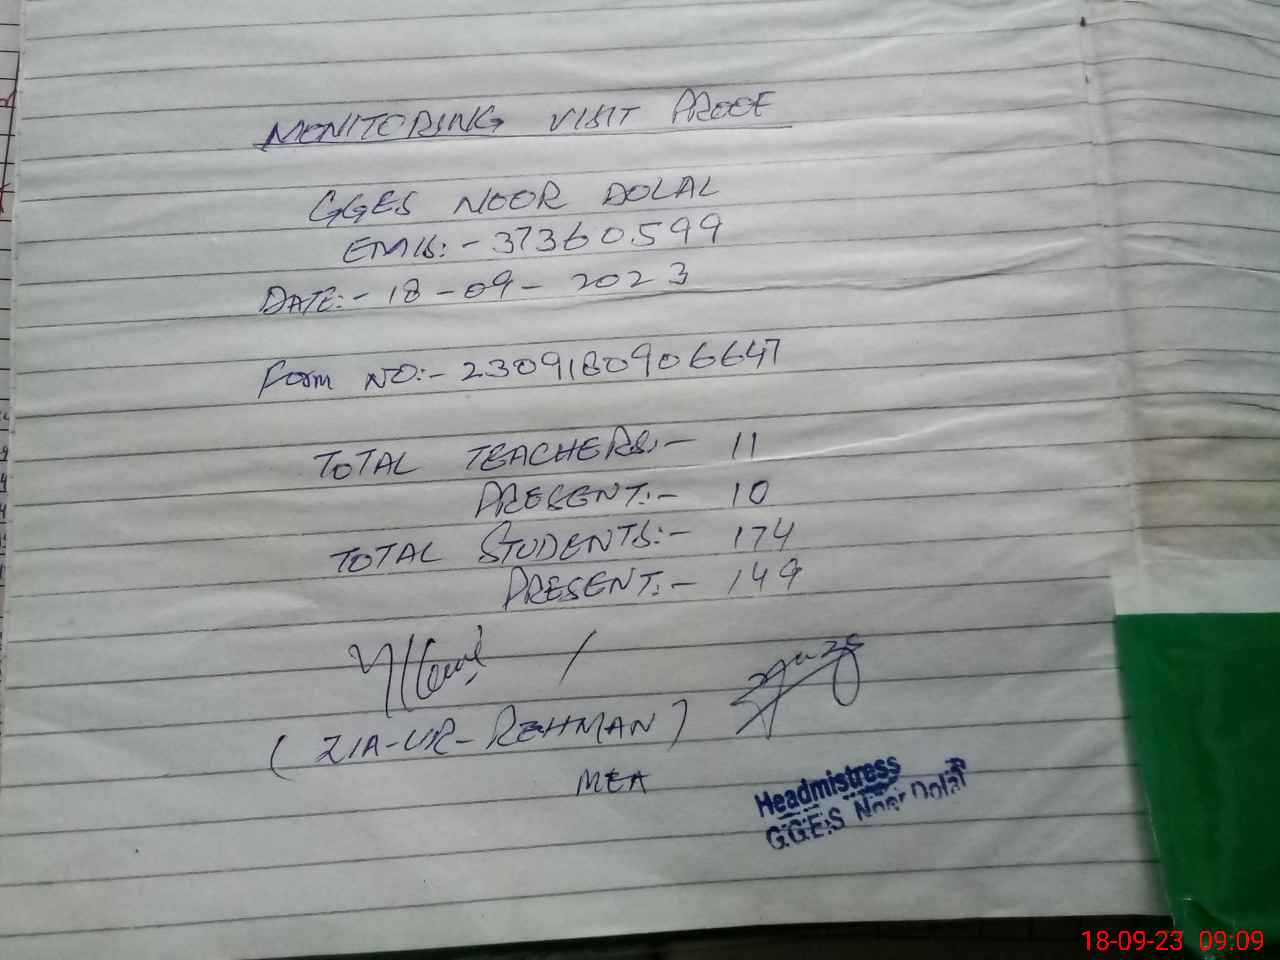 MONITORING VISIT PROOF
GGES NOOR DOLAL
EMIS:- 37360599
DATE:- 18-09-2023
Form NO:- 2309180906647
TOTAL TEACHERS:- 11
PRESENT:- 10
TOTAL STUDENTS:- 174
PRESENT:- 149
(ZIA-UR-REHMAN)
MEA
Headmistress
G.G.E.S Noor Dolal
18-09-23 09:09